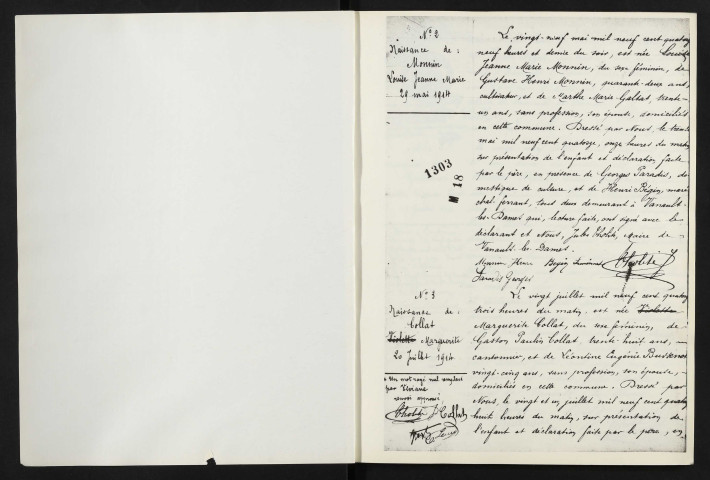 N° 2
Naissance de :
Monnin
Louise Jeanne Marie
29 mai 1914
Le vingt-neuf mai mil neuf cent quatorze
neuf heures et demie du soir, est née Louise
Jeanne Marie Monnin, du sexe féminin, de
Gustave Henri Monnin, quarante-deux ans,
cultivateur, et de Marthe Marie Galtat, trente-
un ans, sans profession, son épouse, domiciliés
en cette commune. Dressé par Nous, le trente
mai mil neuf cent quatorze, onze heures du matin
sur présentation de l'enfant et déclaration faite
par le père, en présence de Georges Paradis, do-
mestique de culture, et de Henri Bégin, maré-
chal ferrant, tous deux demeurant à Vanault-
les-Dames qui, lecture faite, ont signé avec le
déclarant et Nous, Jules Cholité, maire de
Vanault-les-Dames.
Monnin Henri Bégin Cholité
Paradis Georges
1303
M 18
N° 3
Naissance de :
Collat
Violette Marguerite
20 Juillet 1914
Un mot rayé nul
Le vingt juillet mil neuf cent quatorze
trois heures du matin, est née Violette
Marguerite Collat, du sexe féminin, de
Gaston Paulin Collat, trente huit ans,
cantonnier, et de Léontine Eugénie
vingt-cinq ans, sans profession, son épouse,
domiciliés en cette commune. Dressé par
Nous, le vingt et un juillet mil neuf cent quatorze
huit heures du matin, sur présentation de
l'enfant et déclaration faite par le père, en